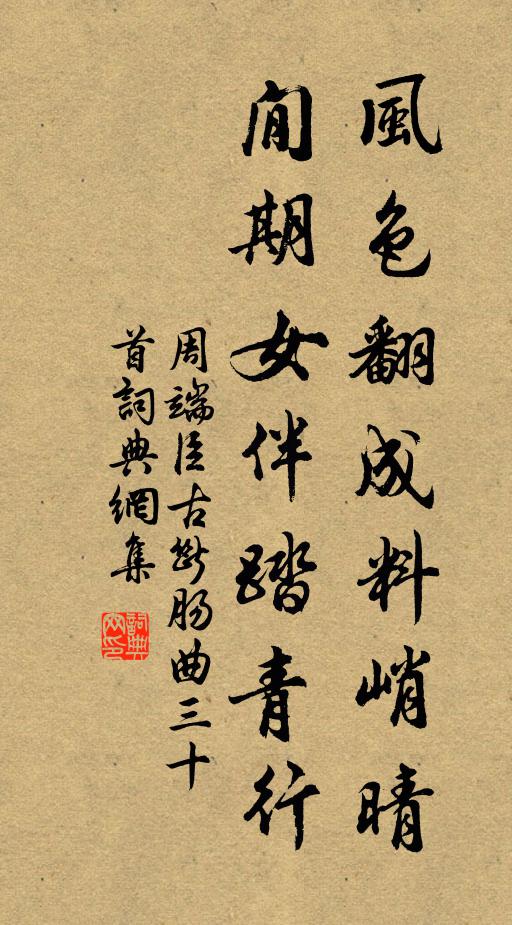 風色翻成料峭晴
閒期女伴踏青行
周端臣古斷腸曲三十
首詞典網集
詞典網印